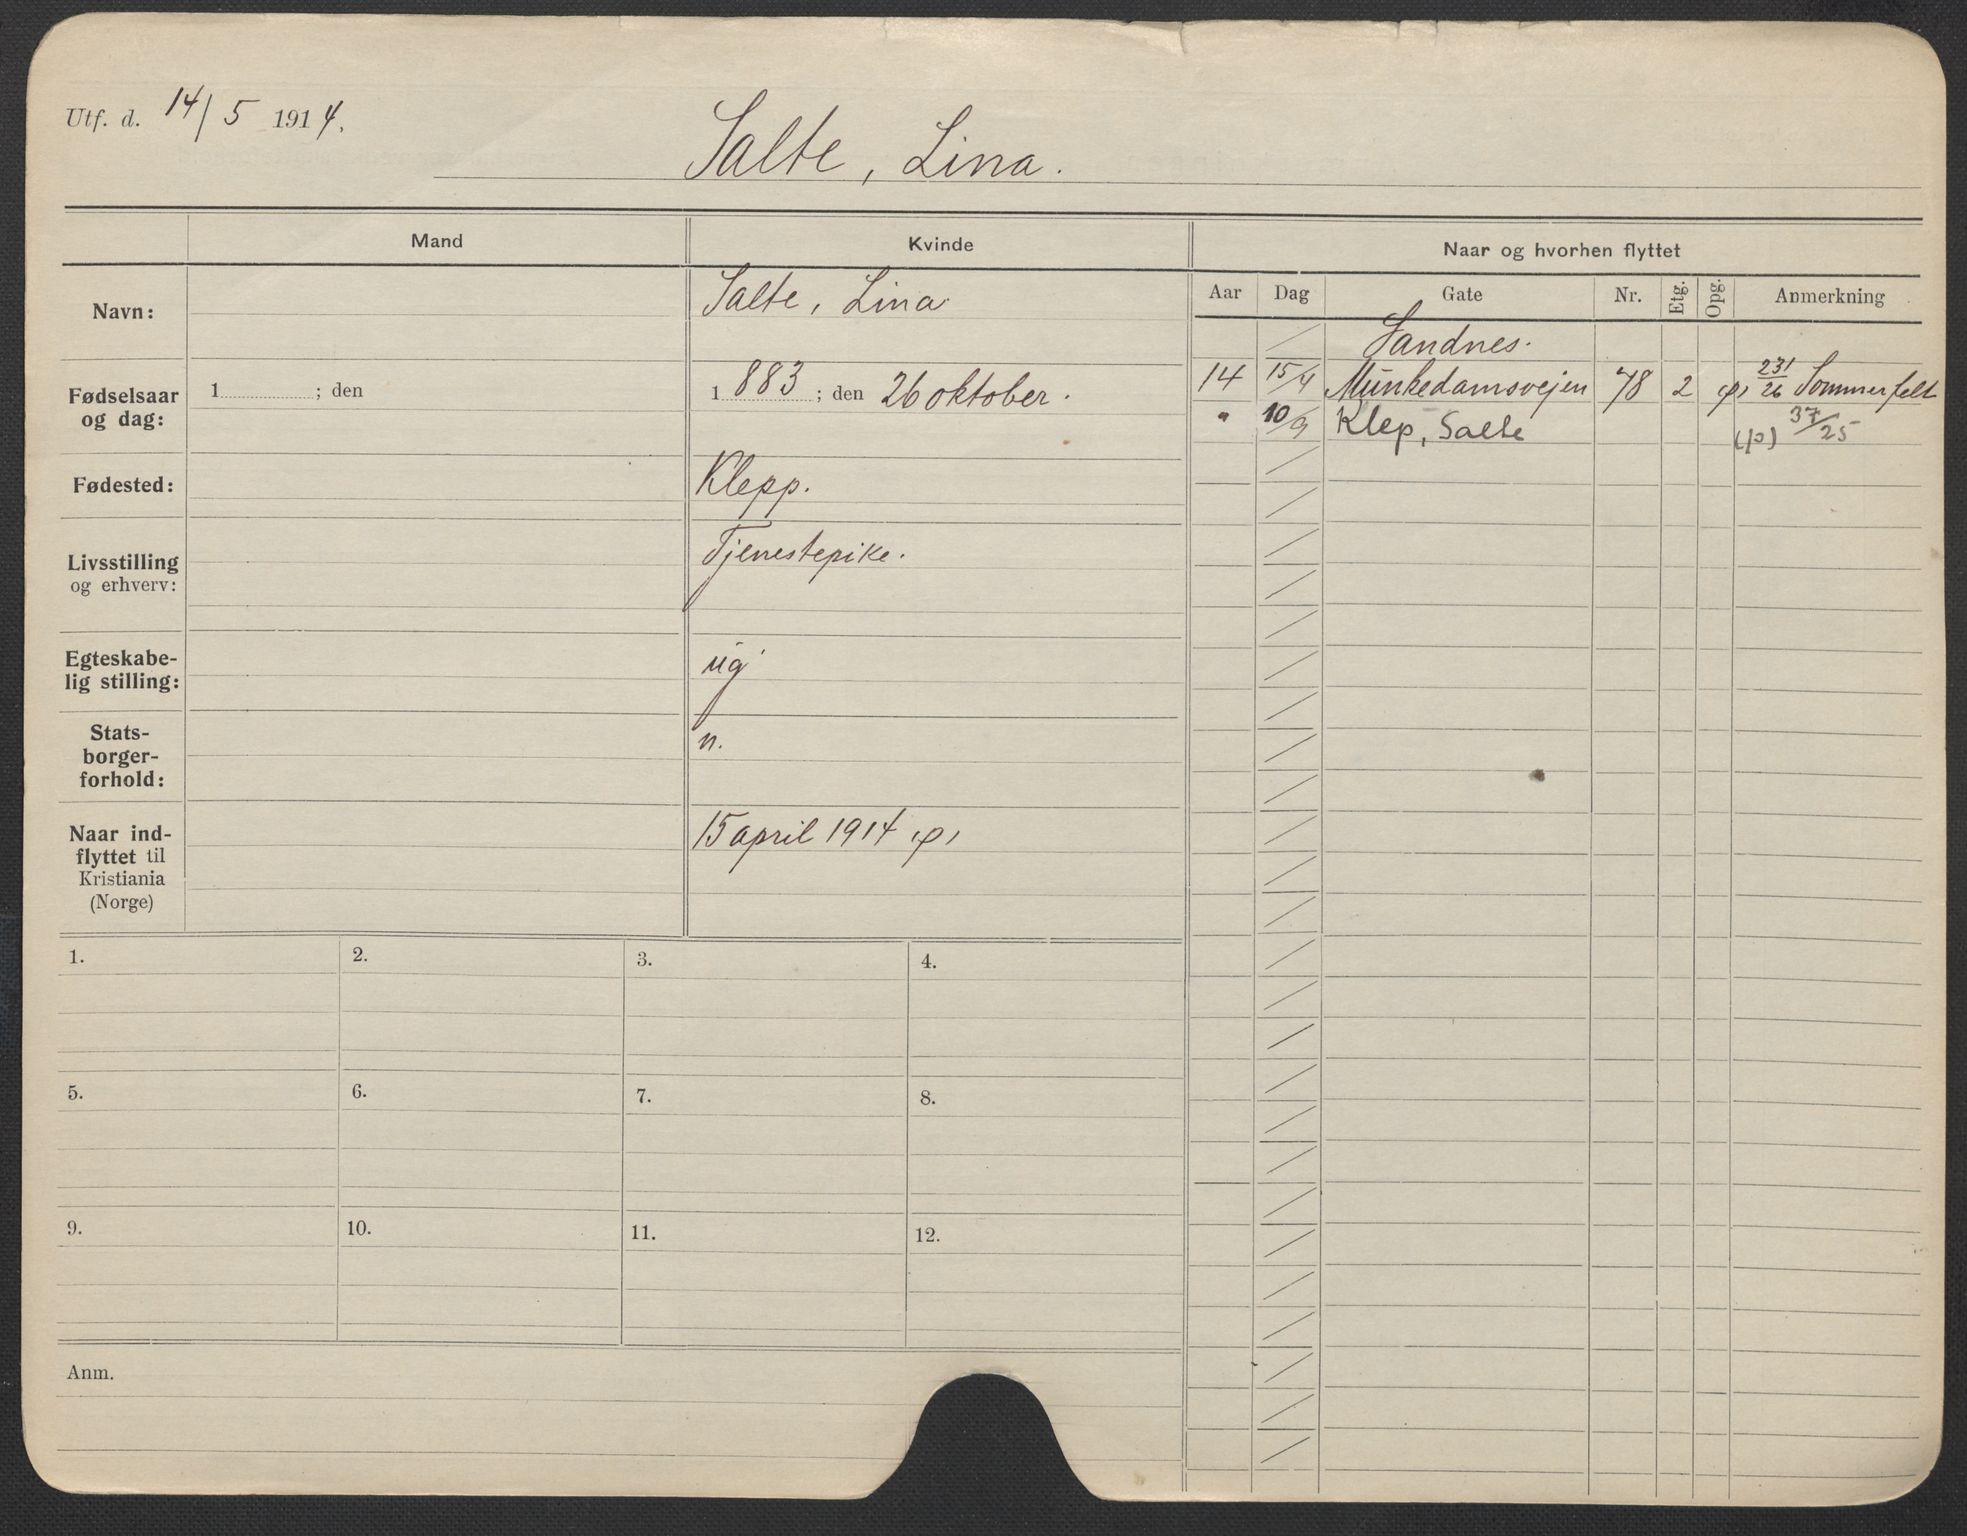 Utf. d. 14/5 1914.
Salte, Lina.
Mand
Kvinde
Naar og hvorhen flyttet
Aar Dag Gate Nr. Etg. Opg. Anmerkning
Navn:
Salte, Lina
Sandnes.
14 15/4 Munkedamsvejen 78 2 231/26 Sommerfelt
" 10/9 Klep, Salte (p) 37/25
Fødselsaar
og dag:
1 ; den
1883; den 26 oktober.
Fødested:
Klepp.
Livsstilling
og erhverv:
Tjenestepike.
Egteskabe-
lig stilling:
ug
Stats-
borger-
forhold:
n.
Naar ind-
flyttet til
Kristiania
(Norge)
15 april 1914
1. 2. 3. 4.
5. 6. 7. 8.
9. 10. 11. 12.
Anm.